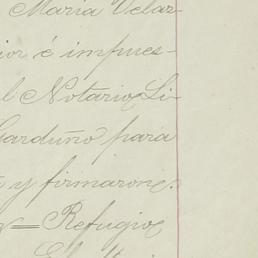 Maria Velar-
ior é impues-
l Notario, Li-
Garduño para
y firmaron.
= Refugio